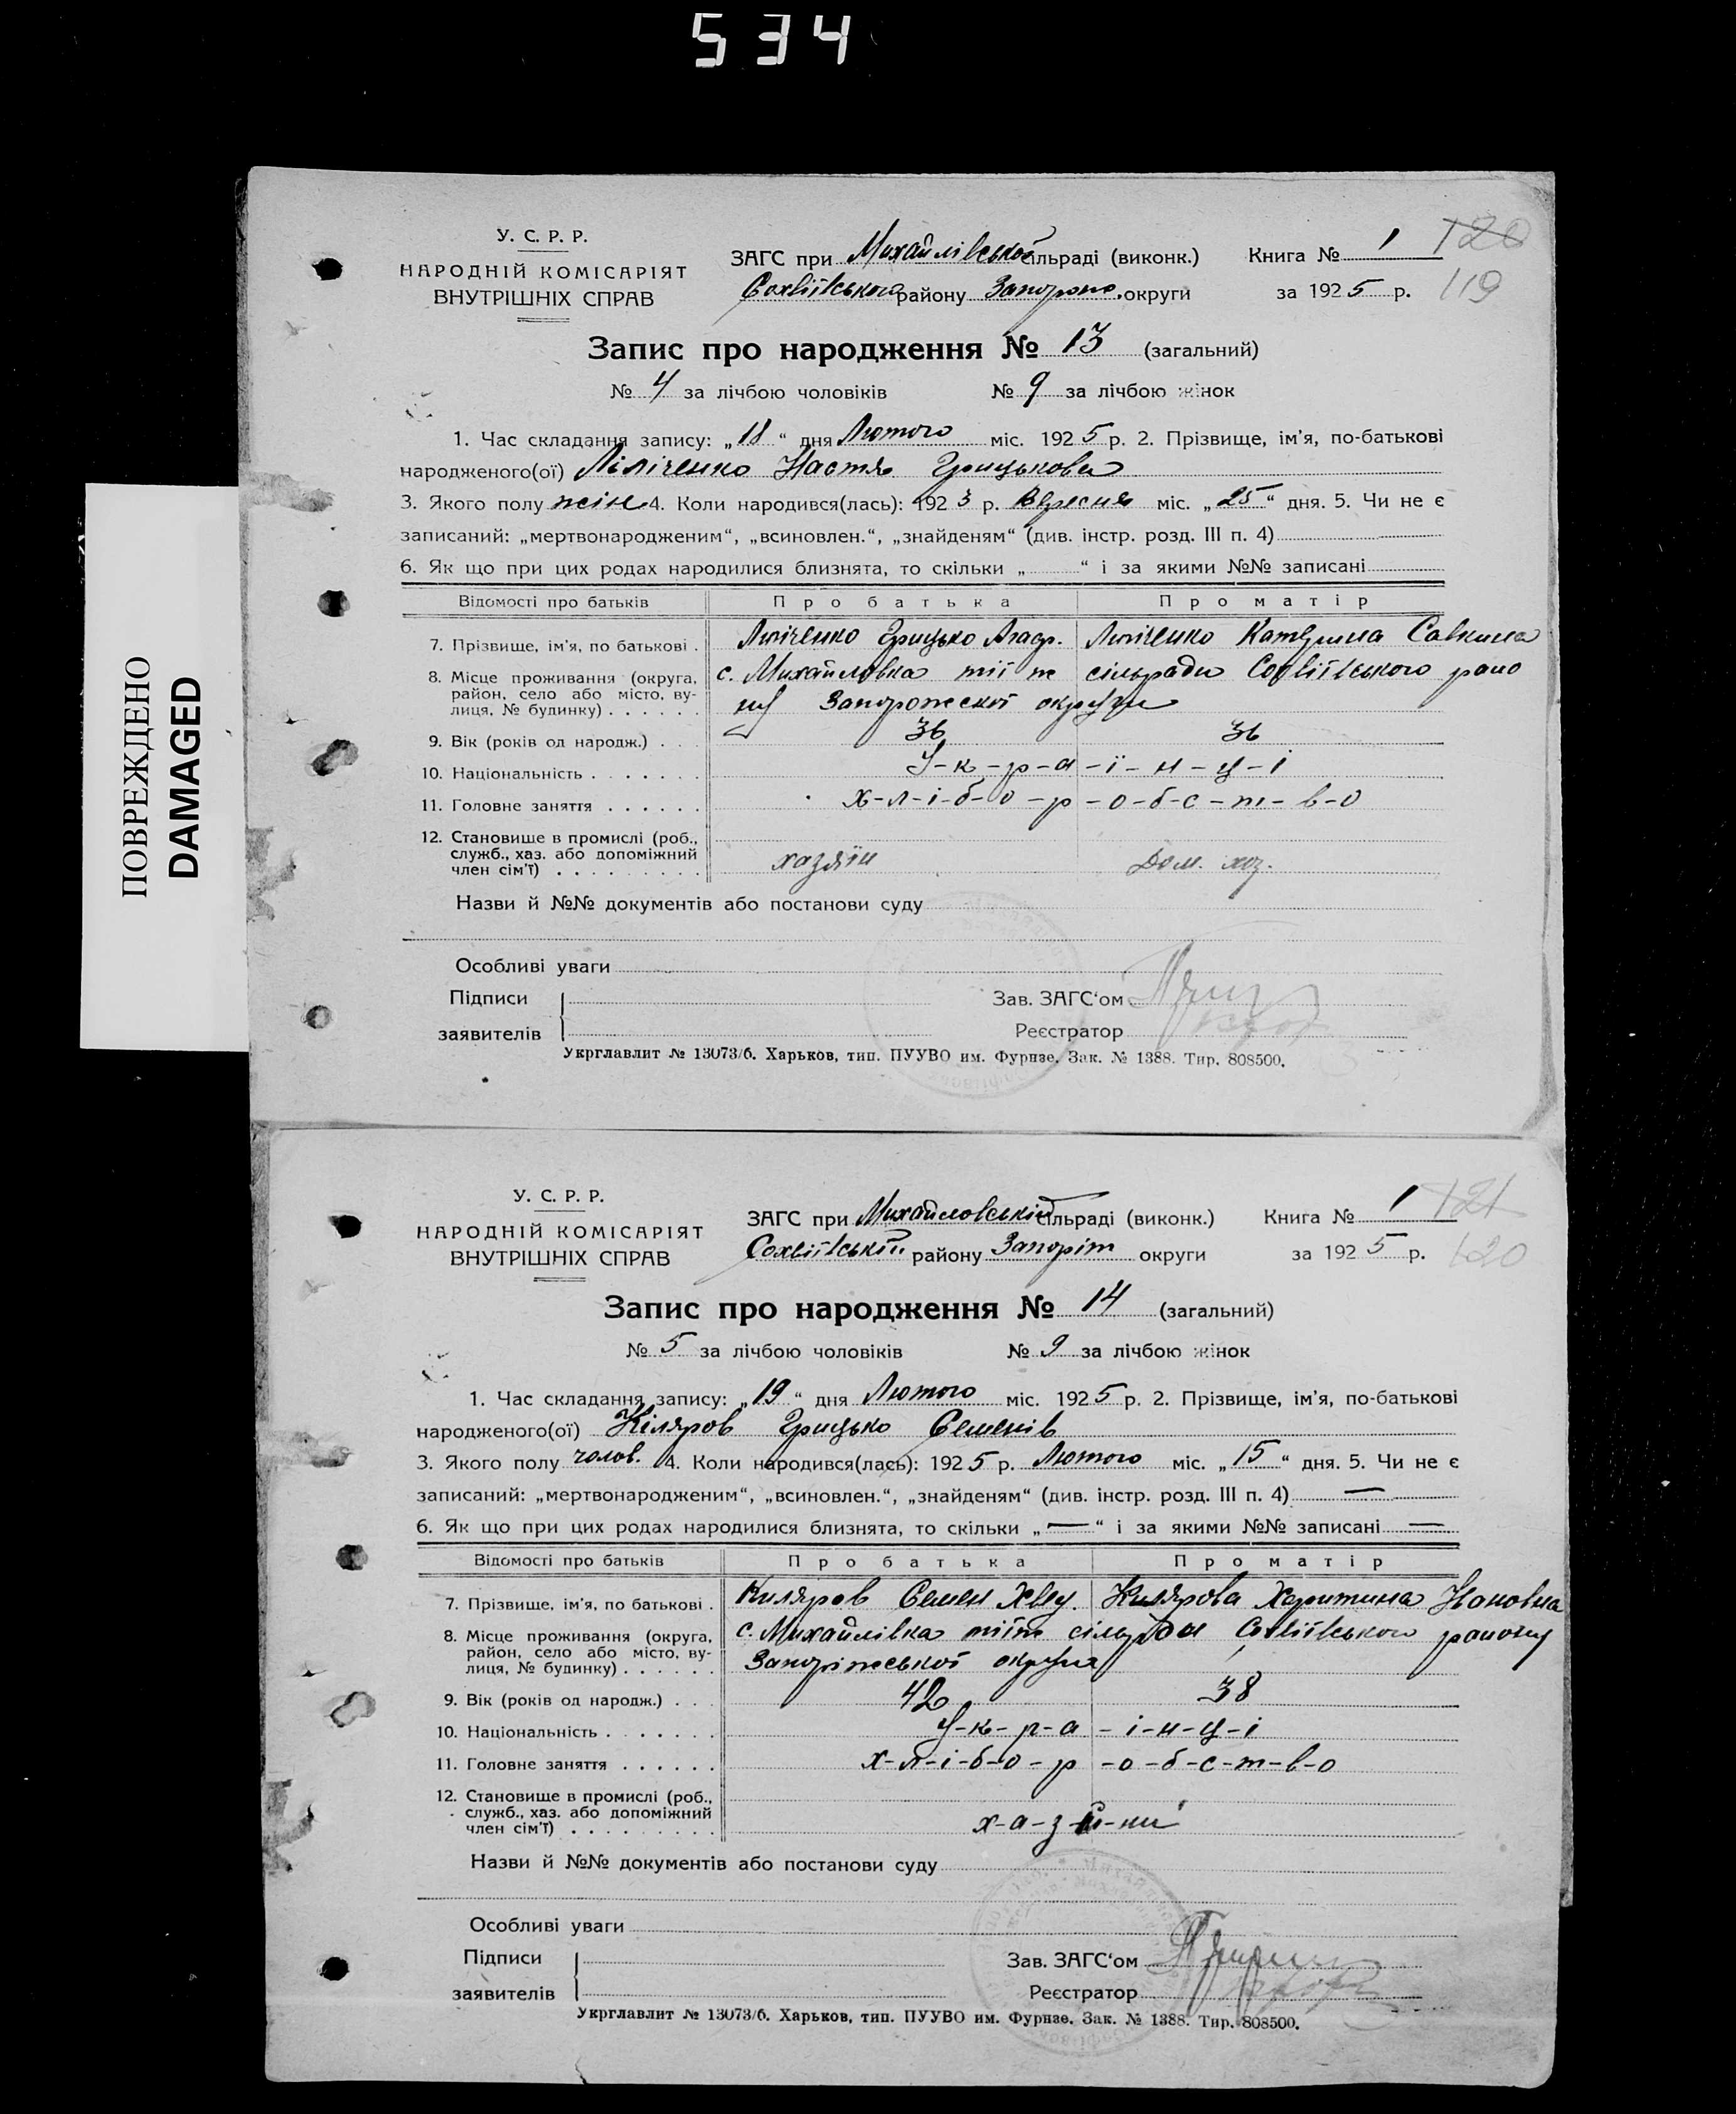 534
ПОВРЕЖДЕНО
DAMAGED
У. С. Р. Р.
НАРОДНІЙ КОМІСАРІЯТ
ВНУТРІШНІХ СПРАВ
ЗАГС при Михайлівської сільраді (виконк.) Книга № 1 120
Софіївського району Запорож. округи за 1925 р. 119
Запис про народження № 13 (загальний)
№ 4 за лічбою чоловіків № 9 за лічбою жінок
1. Час складання запису: „18“ дня Лютого міс. 1925 р. 2. Прізвище, ім'я, по-батькові
народженого(ої) Настя Грицькова
3. Якого полу жін 4. Коли народився(лась): 1923 р. Вересня міс. „25“ дня. 5. Чи не є
записаний: „мертвонародженим“, „всиновлен.“, „знайденям“ (див. інстр. розд. III п. 4)
6. Як що при цих родах народилися близнята, то скільки „ “ і за якими №№ записані
Відомості про батьків Про батька Про матір
7. Прізвище, ім'я, по батькові . Грицько Катерина Савкина
8. Місце проживання (округа, район, село або місто, вулиця, № будинку) . . . . . . с. Михайловка тії ж сільради Софіївського райо
ну Запорожскої округи
9. Вік (років од народж.) . . . 36 36
10. Національність . . . . . . . У-к-р-а-ї-н-ц-і
11. Головне заняття . . . . . . х-л-і-б-о-р-о-б-с-т-в-о
12. Становище в промислі (роб.,
служб., хаз. або допоміжний
член сім'ї) . . . . . . . . . хазяїн Дом. хоз.
Назви й №№ документів або постанови суду
Особливі уваги
Підписи Зав. ЗАГС'ом
заявителів Реєстратор
Укрглавлит № 13073/б. Харьков, тип. ПУУВО им. Фурнзе. Зак. № 1388. Тир. 808500.
У. С. Р. Р.
НАРОДНІЙ КОМІСАРІЯТ
ВНУТРІШНІХ СПРАВ
ЗАГС при Михайловській сільраді (виконк.) Книга № 1 121
Софіївській району Запоріж округи за 1925 р. 120
Запис про народження № 14 (загальний)
№ 5 за лічбою чоловіків № 9 за лічбою жінок
1. Час складання запису: „19“ дня Лютого міс. 1925 р. 2. Прізвище, ім'я, по-батькові
народженого(ої) Кіляров Грицько Семенів
3. Якого полу чолов. 4. Коли народився(лась): 1925 р. Лютого міс. „15“ дня. 5. Чи не є
записаний: „мертвонародженим“, „всиновлен.“, „знайденям“ (див. інстр. розд. III п. 4) —
6. Як що при цих родах народилися близнята, то скільки „—“ і за якими №№ записані —
Відомості про батьків Про батька Про матір
7. Прізвище, ім'я, по батькові . Киляров Семен Хвед. Килярова Харитина Ивановна
8. Місце проживання (округа, район, село або місто, вулиця, № будинку) . . . . . . с. Михайлівка тіїж сільради Софіївського району
Запоріжської округи
9. Вік (років од народж.) . . . 42 38
10. Національність . . . . . . . У-к-р-а-і-н-ц-і
11. Головне заняття . . . . . . х-л-і-б-о-р-о-б-с-т-в-о
12. Становище в промислі (роб.,
служб., хаз. або допоміжний
член сім'ї) . . . . . . . . .
Назви й №№ документів або постанови суду
Особливі уваги
Підписи Зав. ЗАГС'ом
заявителів Реєстратор
Укрглавлит № 13073/б. Харьков, тип. ПУУВО им. Фурнзе. Зак. № 1388. Тир. 808500.